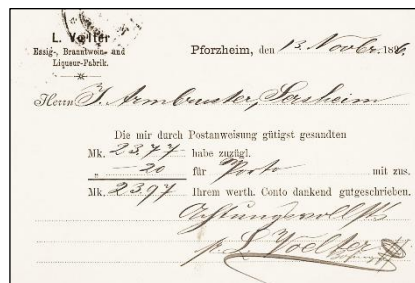 L. Voelter
Essig-, Branntwein- und
Liqueur-Fabrik.
Pforzheim, den 13. Novbr. 1896.
Herrn J. Armbruster, Sersheim
Die mir durch Postanweisung gütigst gesandten
Mk. 23.77 habe zuzügl.
„ —20 für Porto mit zus.
Mk. 23.97 Ihrem werth. Conto dankend gutgeschrieben.
Achtungsvollst
p. L. Voelter